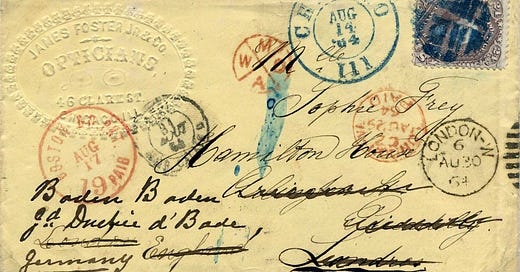 JAMES FOSTER JR. & CO.
OPTICIANS
46 CLARK ST
CHICAGO
AUG
14
64
Ill
Mlle
Sophie Grey
Hamilton House
Piccadilly
Londres
Baden Baden
gd Duchie d'Bade,
London
England
Germany
BOSTON
AUG
17
19
PAID
PAID
LONDON-W
6
AU 30
64